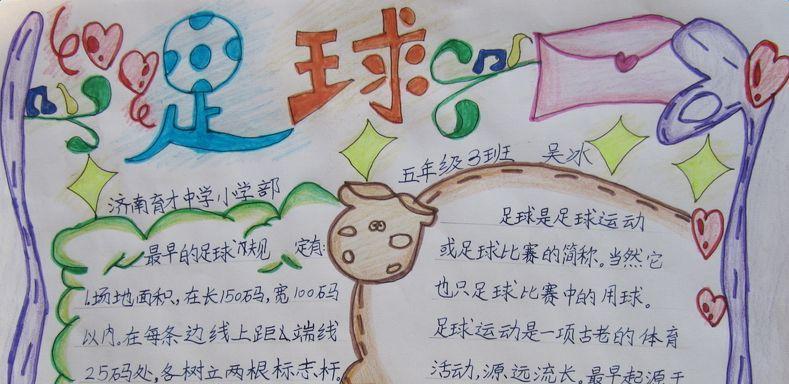 足球
济南育才中学小学部
五年级3班 吴冰
最早的足球 规 定有:
1.场地面积,在长150码,宽100码
以内。在每条边线上距 端线
25码处,各树立两根标志杆。
足球是足球运动
或足球比赛的简称。当然它
也只足球比赛中的用球。
足球运动是一项古老的体育
活动,源远流长。最早起源于